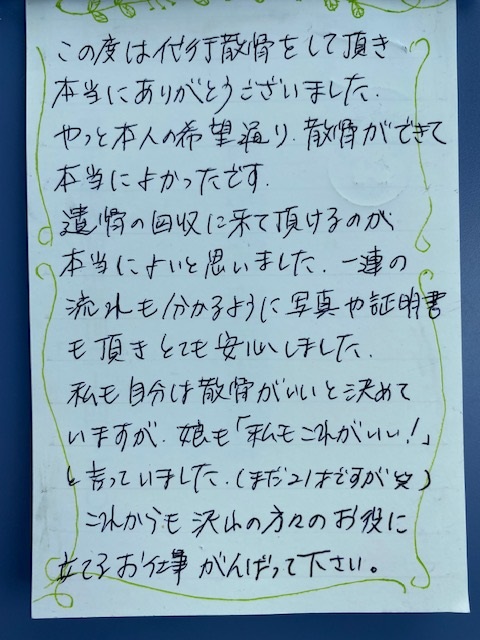 この度は代行散骨をして頂き
本当にありがとうございました.
やっと本人の希望通り.散骨ができて
本当によかったです.
遺骨の回収に来て頂けるのが
本当によいと思いました.一連の
流れも分かるように写真や証明書
も頂きとても安心しました.
私も自分は散骨がいいと決めて
いますが.娘も「私もこれがいい!」
と言っていました.(まだ21才ですが笑)
これからも沢山の方々のお役に
立てるお仕事がんばって下さい。